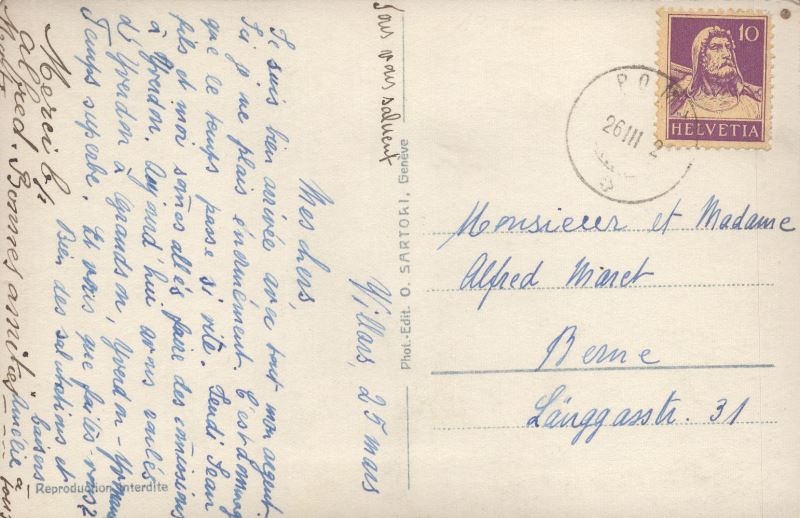 Villars, 25 mars
Mes chers,
Je suis bien arrivée avec tout mon argent.
Ici je me plais énormément. C'est dommage
que le temps passe si vite. Lundi Jean
fils et moi sommes allés faire des commissions
à Yverdon. Aujourd'hui avons
d'Yverdon à Grandson, Yverdon-
Temps superbe. Et vous que faites-vous?
Bien des salutations et
baisers
Amélie
Merci
Alfred. Bonnes amitiés à
tous
Tous vous saluent
Phot.-Edit. O. SARTORI, Genève
Reproduction interdite
10
HELVETIA
26 III 2
Monsieur et Madame
Alfred Miret
Berne
Länggasstr. 31